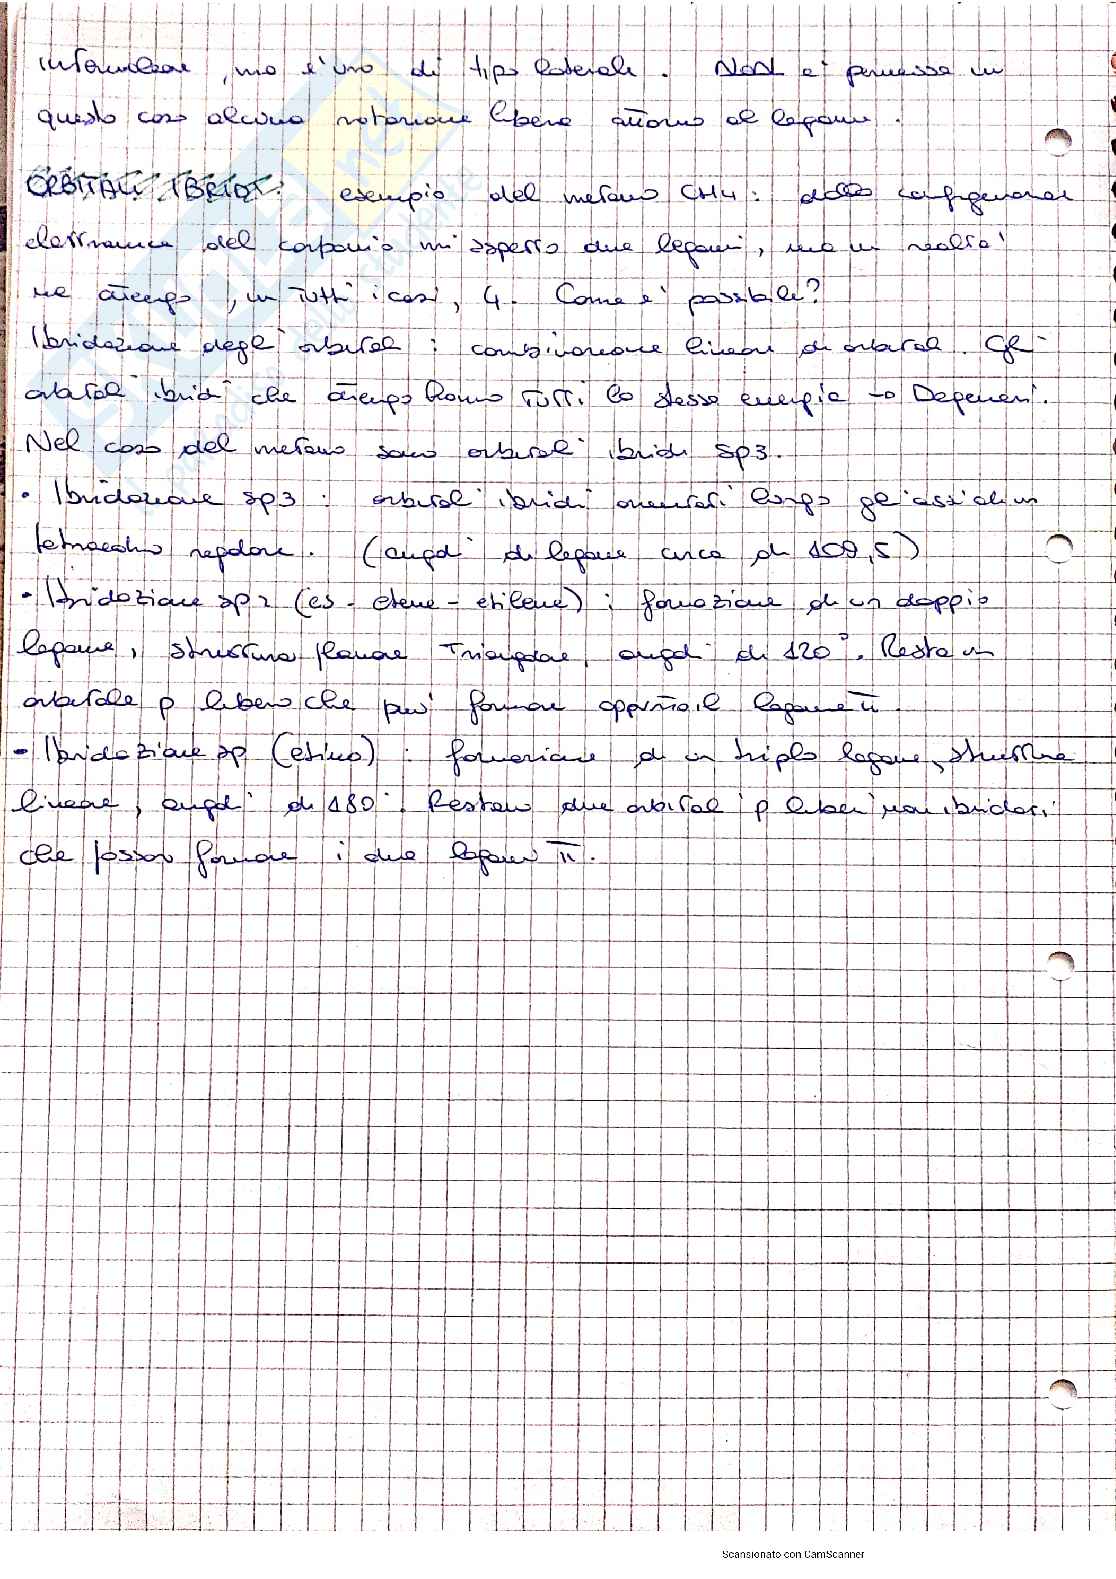 internucleare, ma è uno di tipo laterale. Non è permessa in
questo caso alcuna rotazione libera attorno al legame.
ORBITALI IBRIDI: esempio del metano CH4: dalla configurazione
elettronica del carbonio mi aspetto due legami, ma in realtà
ne ottengo, in tutti i casi, 4. Come è possibile?
Ibridazione degli orbitali: combinazione lineare di orbitali. Gli
orbitali ibridi che ottengo hanno TUTTI la stessa energia → Degeneri.
Nel caso del metano sono orbitali ibridi sp3.
• Ibridazione sp3: orbitali ibridi orientati lungo gli assi di un
tetraedro regolare. (angoli di legame circa di 109,5)
• Ibridazione sp2 (es - etene - etilene): formazione di un doppio
legame, struttura planare triangolare, angoli di 120°. Resta un
orbitale p libero che può formare appunto il legame π.
• Ibridazione sp (etino): formazione di un triplo legame, struttura
lineare, angoli di 180°. Restano due orbitali p liberi non ibridati
che possono formare i due legami π.
Scansionato con CamScanner